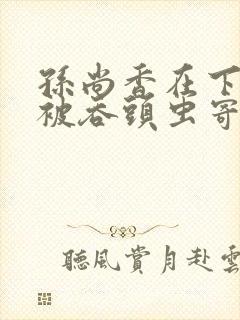 孫尚香在下
被吞頭虫寄
聽風賞月赴雲